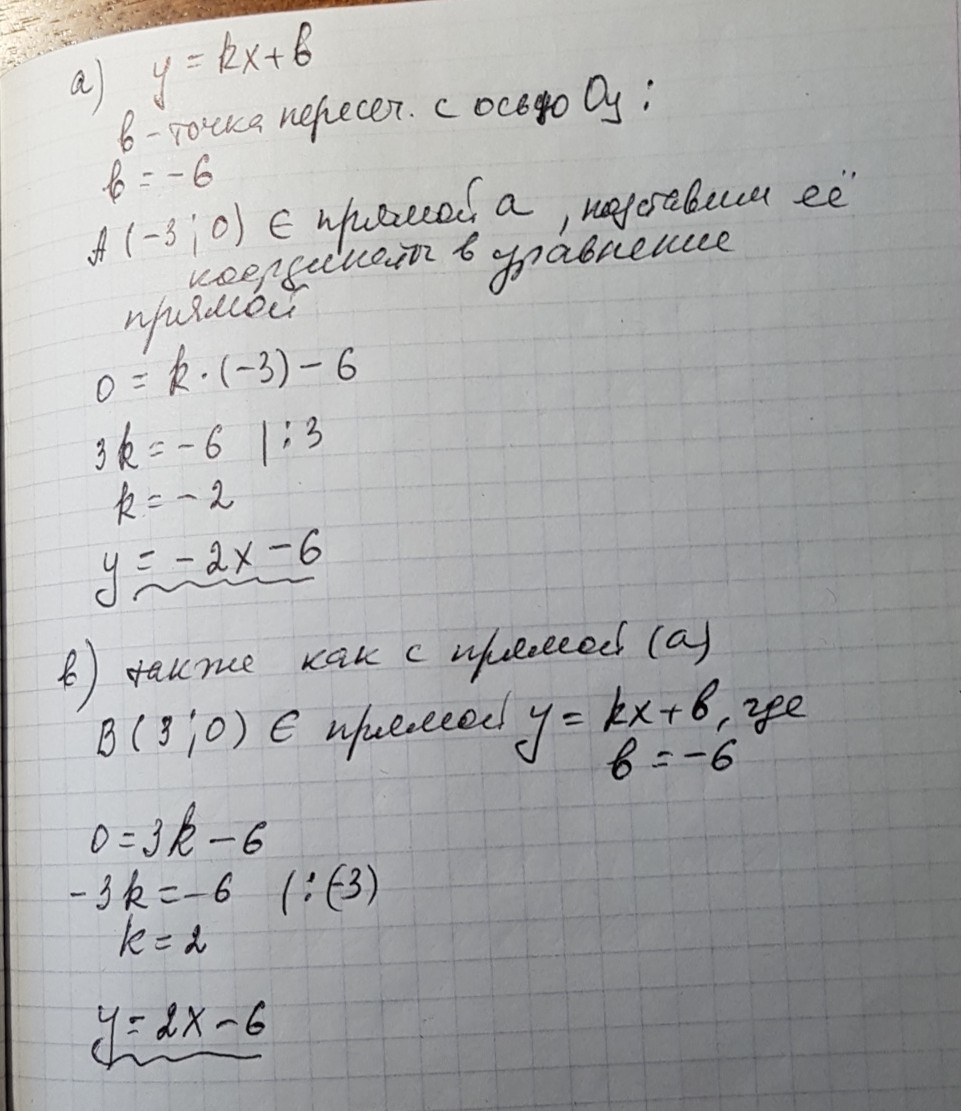 а) y = kx + b
b - точка пересеч. с осью Oy :
b = -6
A (-3 ; 0) ∈ прямой a , подставим её
координаты в уравнение
прямой
0 = k · (-3) - 6
3k = -6 | : 3
k = -2
y = -2x - 6
в) так же как с прямой (a)
B (3 ; 0) ∈ прямой y = kx + b, где
b = -6
0 = 3k - 6
-3k = -6 (: (-3)
k = 2
y = 2x - 6